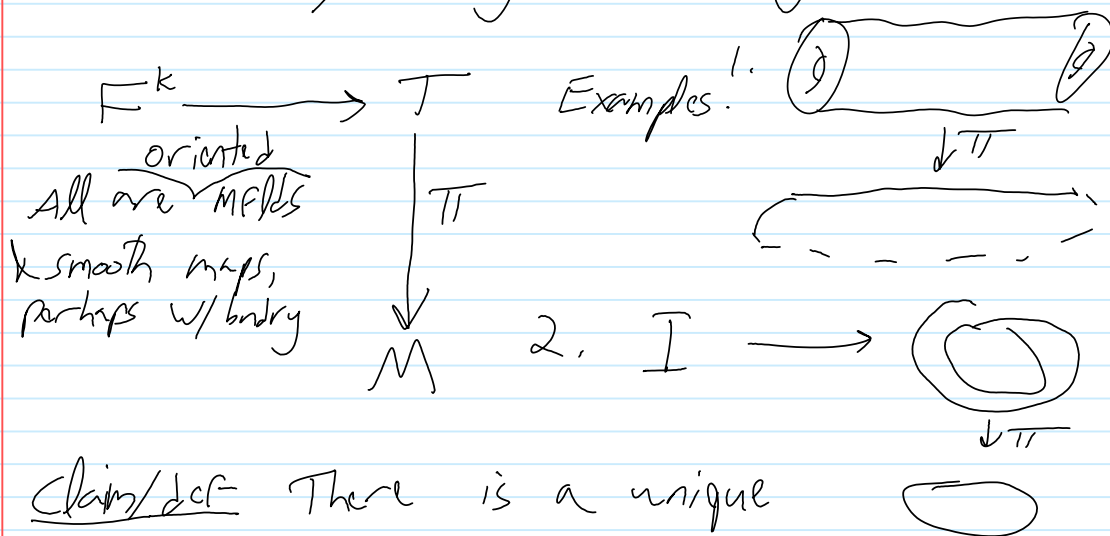 F^k → T
Examples: 1.
↓π
oriented
All are MFlds
& smooth maps,
perhaps w/ bndry
π
M
2. I →
↓π
Claim/def There is a unique